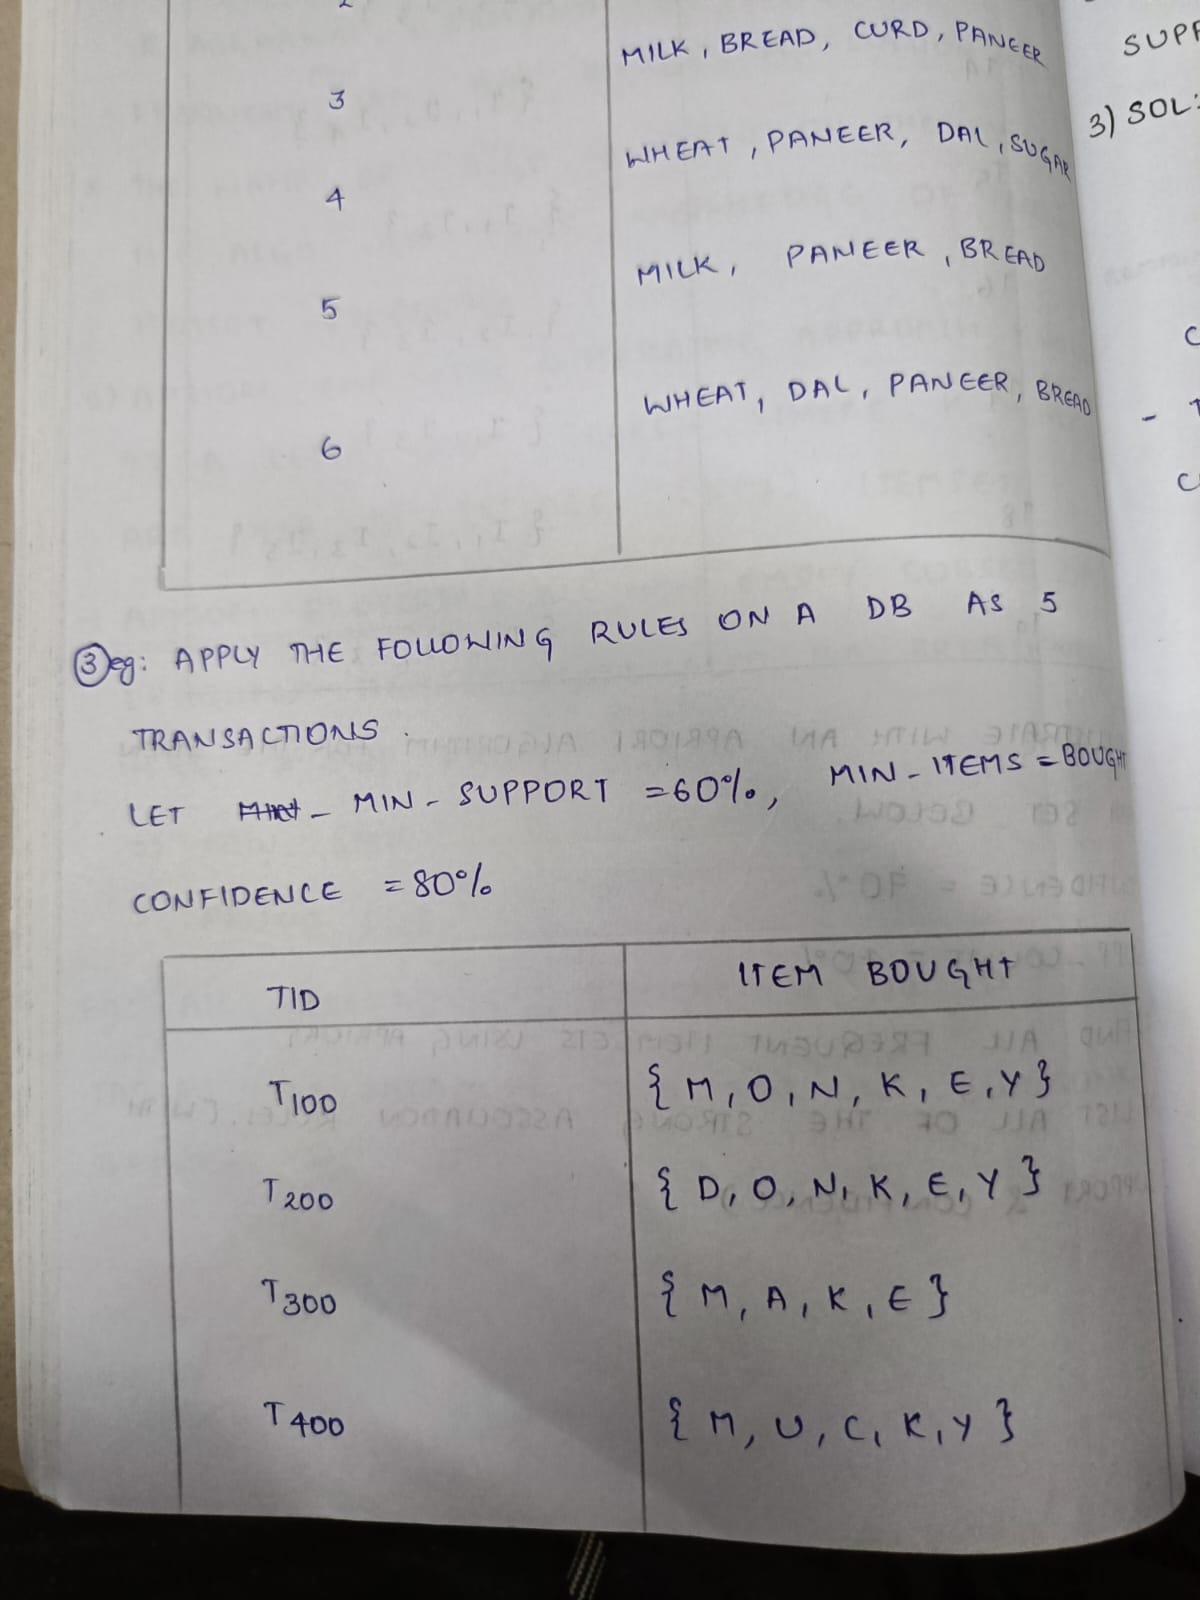 MILK, BREAD, CURD, PANEER
3
WHEAT, PANEER, DAL, SUGAR
4
MILK, PANEER, BREAD
5
WHEAT, DAL, PANEER, BREAD
6
3) SOL:
③ eg: APPLY THE FOLLOWING RULES ON A DB AS 5
TRANSACTIONS.
LET - MIN - SUPPORT = 60%, MIN - ITEMS = BOUGHT
CONFIDENCE = 80%
TID ITEM BOUGHT
T100 { M, O, N, K, E, Y }
T200 { D, O, N, K, E, Y }
T300 { M, A, K, E }
T400 { M, U, C, K, Y }